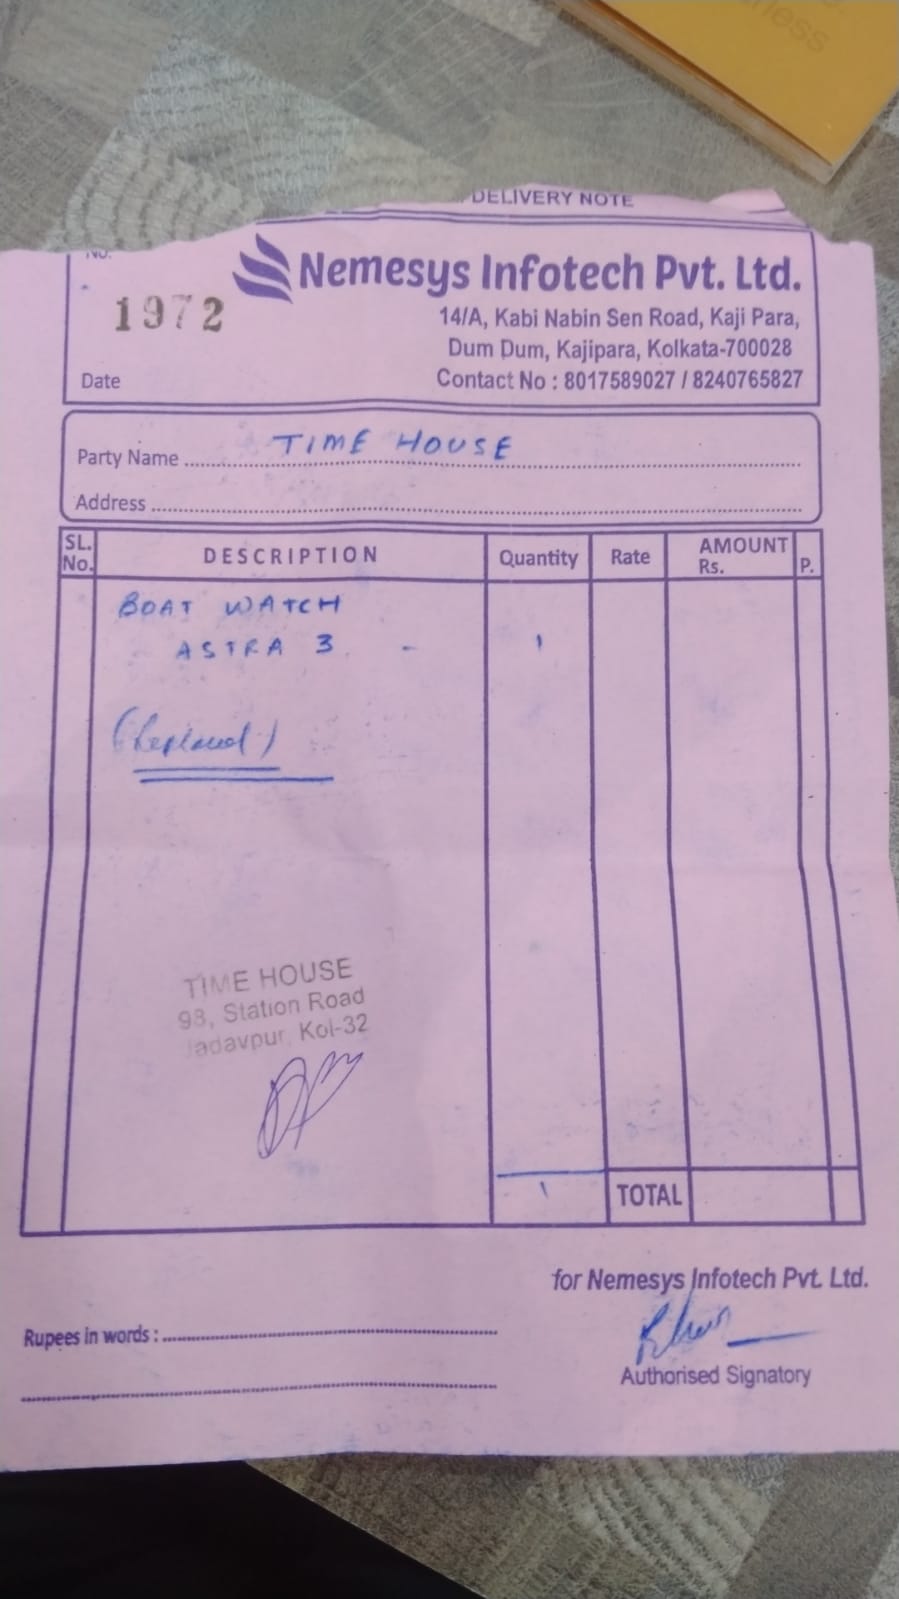 DELIVERY NOTE
No.
Nemesys Infotech Pvt. Ltd.
1972
14/A, Kabi Nabin Sen Road, Kaji Para,
Dum Dum, Kajipara, Kolkata-700028
Date
Contact No : 8017589027 / 8240765827
Party Name TIME HOUSE
Address
SL. No. DESCRIPTION Quantity Rate AMOUNT Rs. P.
BOAT WATCH
ASTRA 3 - 1
(Replaced)
TIME HOUSE
98, Station Road
Jadavpur, Kol-32
1 TOTAL
for Nemesys Infotech Pvt. Ltd.
Rupees in words :
Authorised Signatory